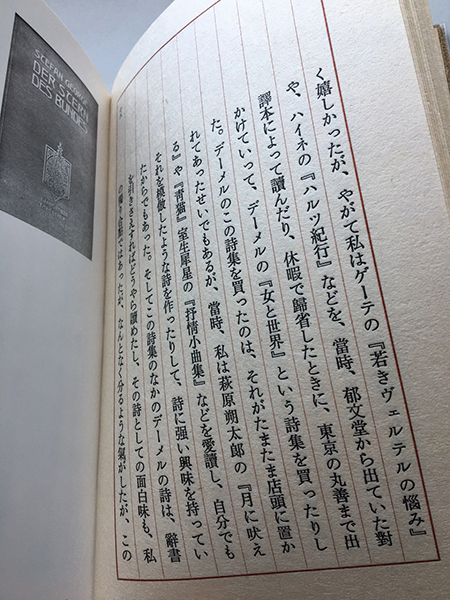 STEFAN GEORGE
DER STERN
DES BUNDES
く嬉しかったが、やがて私はゲーテの『若きヴェルテルの悩み』
や、ハイネの『ハルツ紀行』などを、當時、郁文堂から出ていた對
譯本によって讀んだり、休暇で歸省したときに、東京の丸善まで出
かけていって、デーメルの『女と世界』という詩集を買ったりし
た。デーメルのこの詩集を買ったのは、それがたまたま店頭に置か
れてあったせいでもあるが、當時、私は萩原朔太郎の『月に吠え
る』や『靑猫』室生犀星の『抒情小曲集』などを愛讀し、自分でも
それを模倣したような詩を作ったりして、詩に强い興味を持ってい
たからでもあった。そしてこの詩集のなかのデーメルの詩は、辭書
を引きさえすればどうやら讀めたし、その詩としての面白味も、私
の獨り合點ではあったが、なんとなく分るような氣がしたが、この